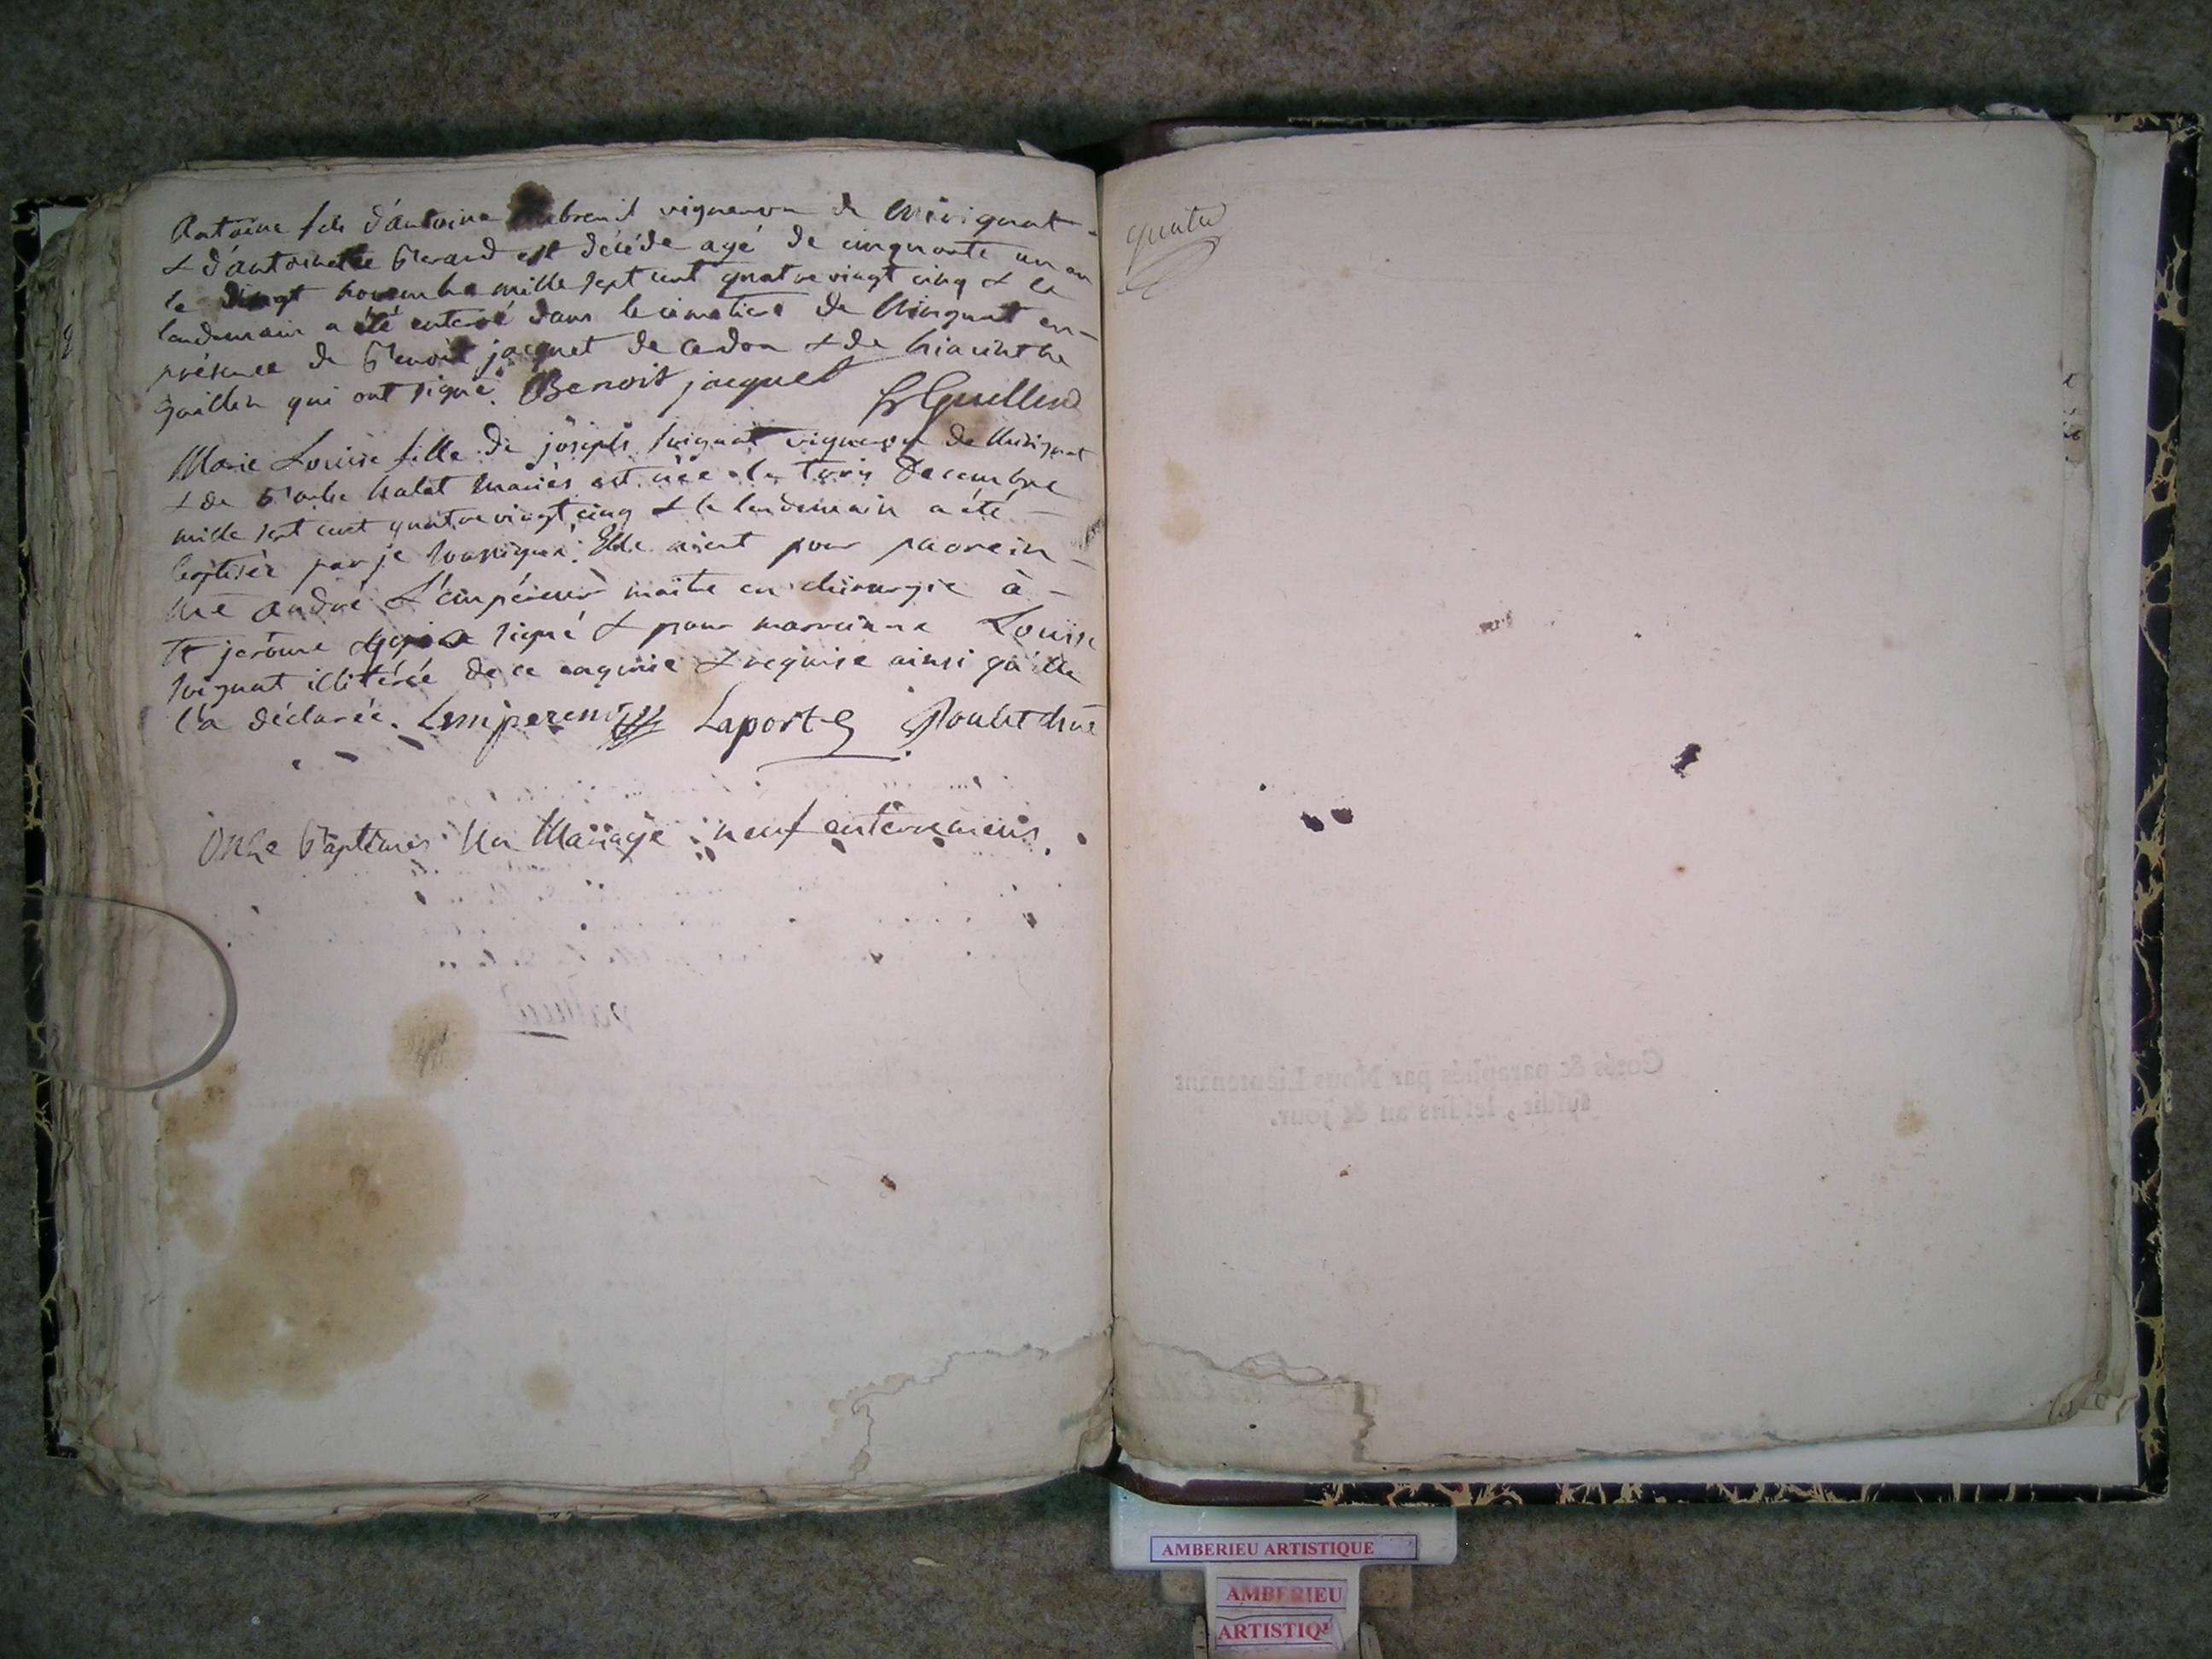 Antoine fils d'antoine vigneron de Mérignat
& d'antoinette Berard est décédé agé de cinquante un an
le vingt novembre mille sept cent quatre vingt cinq & le
landemain a été enteré dans le cimetiere de Mérignat en
présence de Benoit jacquet de cerdon & de hiacinthe
guillen qui ont signé. Benoit jacquet
Marie Louise fille de joseph vigneron de Mérignat
& de mariés est née le trois Decembre
mille sept cent quatre vingt cinq & le landemain a été
baptisée par je soussigné. Elle aient pour parrein
Mre andré L'empéreur maitre en chirurgie à
st jerôme signé & pour marreinne Louise
illitérée de ce enquise & requise ainsi qu'elle
l'a déclarée. Lempereur Laporte
Onze Baptêmes Un Mariage neuf enterremens.
quatre
Cotés & paraphés par Nous Lieutenant
susdit, lesdits an & jour.
AMBERIEU ARTISTIQUE
AMBERIEU
ARTISTIQ